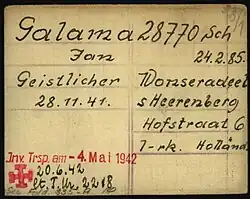 Galama 28770 Sch
Jan 24.2.85.
Geistlicher Wonseradeel
28.11.41. s Heerenberg
Hofstraat 6
1-rk. Holländ.
Inv. Trsp. am - 4. Mai 1942
20.6.42